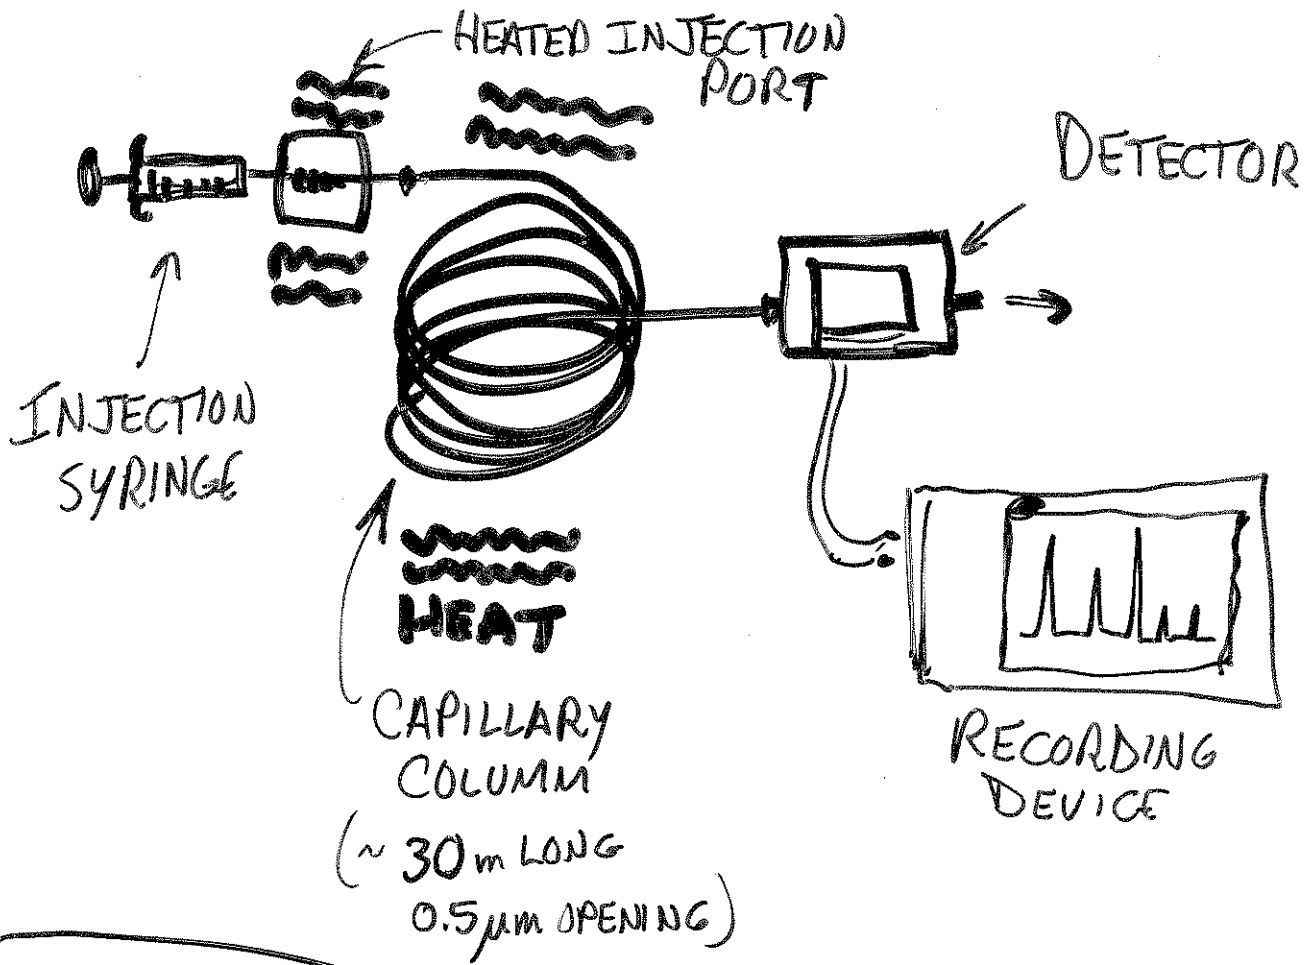 HEATED INJECTION
PORT
DETECTOR
INJECTION
SYRINGE
HEAT
CAPILLARY
COLUMM
(~ 30m LONG
0.5µm OPENING)
RECORDING
DEVICE